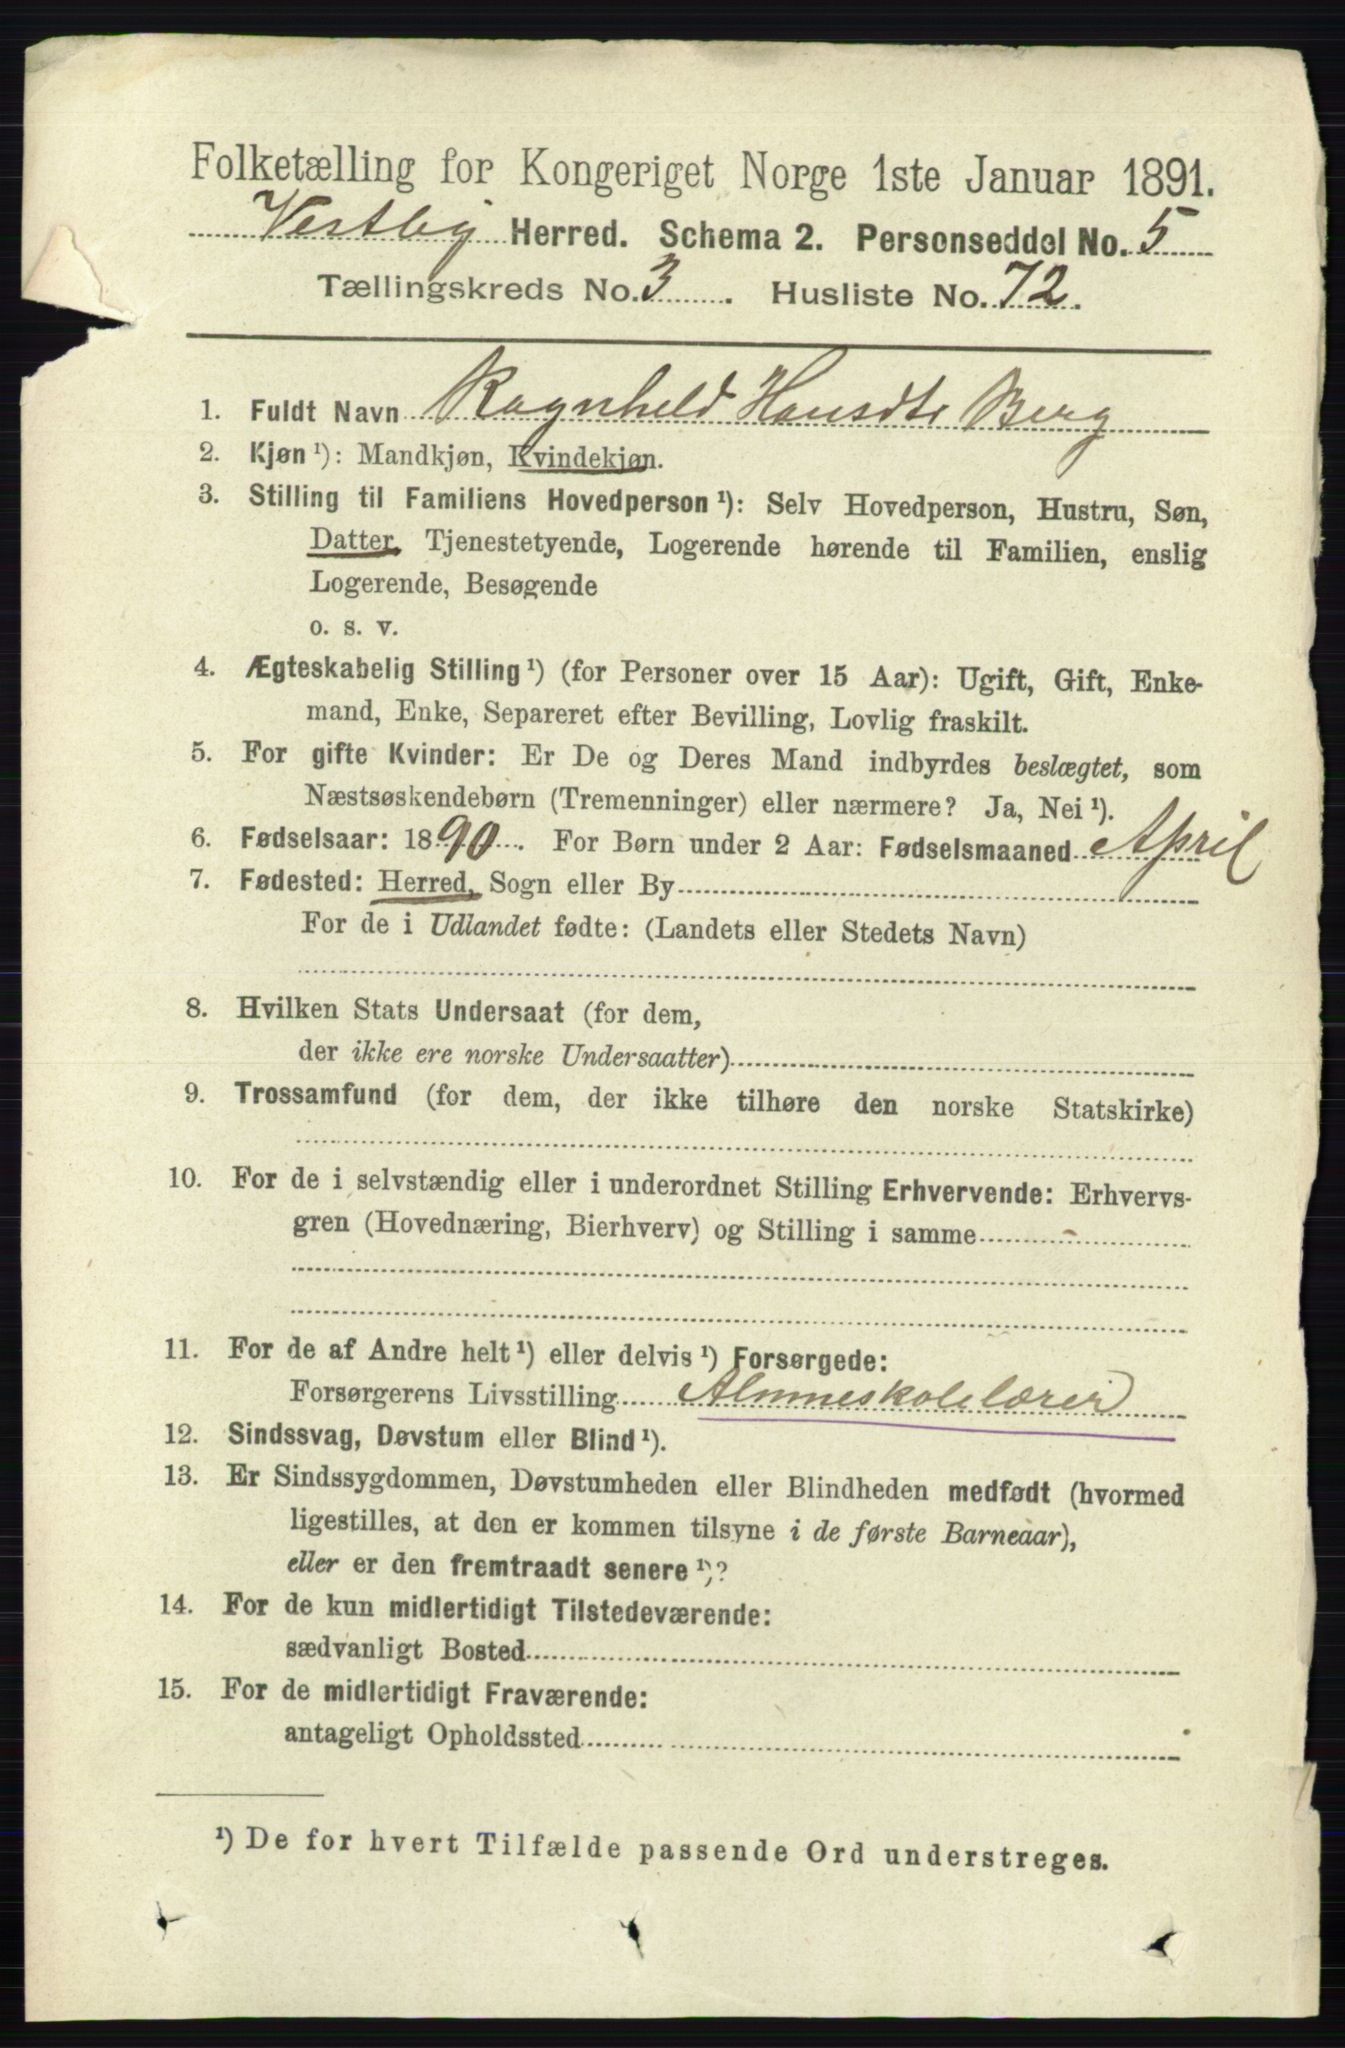 Folketælling for Kongeriget Norge 1ste Januar 1891.
Vestby Herred. Schema 2. Personseddel No. 5
Tællingskreds No. 3. Husliste No. 72.
1. Fuldt Navn Ragnheld Hansdt Berg
2. Kjøn ¹): Mandkjøn, Kvindekjøn.
3. Stilling til Familiens Hovedperson ¹): Selv Hovedperson, Hustru, Søn,
Datter, Tjenestetyende, Logerende hørende til Familien, enslig
Logerende, Besøgende
o. s. v.
4. Ægteskabelig Stilling ¹) (for Personer over 15 Aar): Ugift, Gift, Enke-
mand, Enke, Separeret efter Bevilling, Lovlig fraskilt.
5. For gifte Kvinder: Er De og Deres Mand indbyrdes beslægtet, som
Næstsøskendebørn (Tremenninger) eller nærmere? Ja, Nei ¹).
6. Fødselsaar: 1890. For Børn under 2 Aar: Fødselsmaaned April
7. Fødested: Herred, Sogn eller By
For de i Udlandet fødte: (Landets eller Stedets Navn)
8. Hvilken Stats Undersaat (for dem,
der ikke ere norske Undersaatter)
9. Trossamfund (for dem, der ikke tilhøre den norske Statskirke)
10. For de i selvstændig eller i underordnet Stilling Erhvervende: Erhvervs-
gren (Hovednæring, Bierhverv) og Stilling i samme -
11. For de af Andre helt ¹) eller delvis ¹) Forsørgede:
Forsørgerens Livsstilling Almueskolelærer
12. Sindssvag, Døvstum eller Blind ¹).
13. Er Sindssygdommen, Døvstumheden eller Blindheden medfødt (hvormed
ligestilles, at den er kommen tilsyne i de første Barneaar),
eller er den fremtraadt senere ¹)?
14. For de kun midlertidigt Tilstedeværende:
sædvanligt Bosted
15. For de midlertidigt Fraværende:
antageligt Opholdssted
¹) De for hvert Tilfælde passende Ord understreges.